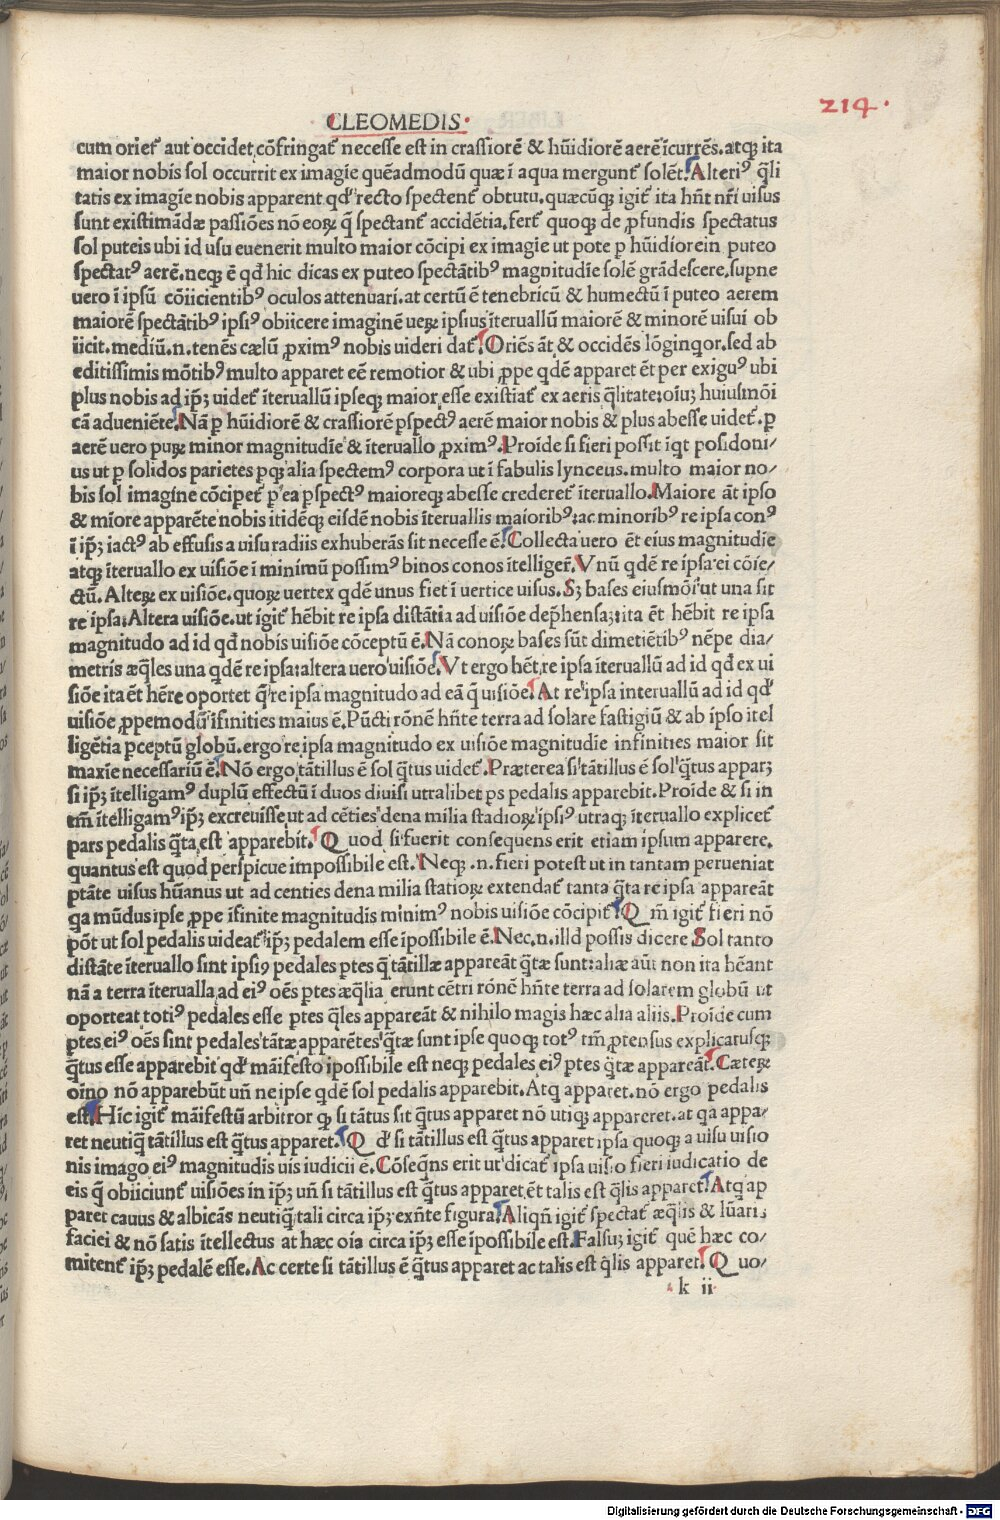 214.
CLEOMEDIS.
cum orieť aut occidet,cōfringať necesse est in crassiorē & hūidiorē aerē īcurrēs.atqꝫ ita
maior nobis sol occurrit ex imagīe quēadmodū quæ ī aqua mergunť solēť.Alteriꝰ q̄li
tatis ex imagīe nobis apparent qď recto spectenť obtutu.quæcūqꝫ igiť ita hn̄t nr̄i uisus
sunt existimādæ passiōes nō eoꝝ q̄ spectanť accidētia.ferť quoqꝫ de ꝓfundis spectatus
sol puteis ubi id usu euenerit multo maior cōcipi ex imagīe ut pote p hūidiorein puteo
spectatꝰ aerē.neqꝫ ē qď hic dicas ex puteo spectātibꝰ magnitudīe solē grādescere,supne
uero ī ipsū cōiicientibꝰ oculos attenuari.at certū ē tenebricū & humectū ī puteo aerem
maiorē spectātibꝰ ipsiꝰ obiicere imaginē ueꝝ ipsius īteruallū maiorē & minorē uisui ob
iicit.mediū.n.tenēs cælū ꝓximꝰ nobis uideri dať.Oriēs āt & occidēs lōginqor.sed ab
editissimis mōtibꝰ multo apparet eē remotior & ubi ꝓpe qdē apparet ēt per exiguꝰ ubi
plus nobis ad ipꝫ uideť īteruallū ipseqꝫ maior esse existiať ex aeris q̄litate:oīuꝫ huiusmōi
cā adueniēte.Nā p hūidiorē & crassiorē pspectꝰ aerē maior nobis & plus abesse uideť.p
aerē uero puꝝ minor magnitudīe & īteruallo ꝓximꝰ.Proīde si fieri possit īqt posidoni/
us ut p solidos parietes pqꝫ alia spectemꝰ corpora ut ī fabulis lynceus.multo maior no/
bis sol imagīne cōcipeť p ea pspectꝰ maioreqꝫ abesse credereť īteruallo.Maiore āt ipso
& mīore apparēte nobis itidēqꝫ eisdē nobis īteruallis maioribꝰ:ac minoribꝰ re ipsa conꝰ
ī ipꝫ iactꝰ ab effusis a uisu radiis exhuberās sit necesse ē.Collecta uero ēt eius magnitudīe
atqꝫ īteruallo ex uisiōe ī minimū possimꝰ binos conos ītelligeř.Vnū qdē re ipsa ei cōie/
ctū.Alteꝝ ex uisiōe.quoꝝ uertex qdē unus fiet ī uertice uisus.Sꝫ bases eiusmōi ut una sit
re ipsa:Altera uisiōe.ut igiť hēbit re ipsa distātia ad uisiōe dep̄hensaꝫ:ita ēt hēbit re ipsa
magnitudo ad id qď nobis uisiōe cōceptū ē.Nā conoꝝ bases sūt dimetiētibꝰ nēpe dia/
metris æq̄les una qdē re ipsa:altera uero uisiōe.Vt ergo hēt re ipsa īteruallū ad id qď ex ui
siōe ita ēt hēre oportet q̄ re ipsa magnitudo ad eā q̄ uisiōe.At re ipsa interuallū ad id qď
uisiōe ꝓpemodū īfinities maius ē.Pūcti rōnē hn̄te terra ad solare fastigiū & ab ipso itel
ligētia pceptū globū.ergo re ipsa magnitudo ex uisiōe magnitudīe infinities maior sit
maxīe necessariū ē.Nō ergo tātillus ē sol q̄tus uideť.Præterea si tātillus ē sol q̄tus apparꝫ
si ipꝫ ītelligamꝰ duplū effectū ī duos diuisi utralibet ps pedalis apparebit.Proīde & si in
tm̄ ītelligamꝰ ipꝫ excreuisse,ut ad cēties dena milia stadioꝝ ipsiꝰ utraqꝫ īteruallo expliceť
pars pedalis q̄ta est apparebit. Quod si fuerit consequens erit etiam ipsum apparere,
quantus est quod perspicue impossibile est. Neqꝫ .n.fieri potest ut in tantam perueniat
ptāte uisus hūanus ut ad centies dena milia statioꝝ extendať tanta q̄ta re ipsa appareāt
qa mūdus ipse ꝓpe īfinite magnitudis minimꝰ nobis uisiōe cōcipiť.Qm̄ igiť fieri nō
pōt ut sol pedalis uideať ipꝫ pedalem esse īpossibile ē.Nec.n.illď possis dicere Sol tanto
distāte īteruallo sint ipsiꝰ pedales ptes q̄ tātillæ appareāt q̄tæ sunt:aliæ aūt non ita hēant
nā a terra īterualla ad eiꝰ oēs ptes æq̄lia erunt cētri rōnē hn̄te terra ad solarem globū ut
oporteat totiꝰ pedales esse ptes q̄les appareāt & nihilo magis hæc alia aliis.Proīde cum
ptes eiꝰ oēs sint pedales tātæ apparētes q̄tæ sunt ipse quoqꝫ totꝰ tm̄ ꝓtensus explicatusqꝫ
q̄tus esse apparebit qď māifesto īpossibile est neqꝫ pedales eiꝰ ptes q̄tæ appareāt.Cæteꝝ
oīno nō apparebūt un̄ ne ipse qdē sol pedalis apparebit.Atq apparet.nō ergo pedalis
est.Hīc igiť māifestū arbitror qꝫ si tātus sit q̄tus apparet nō utiqꝫ appareret.at qa appa/
ret neutiq̄ tātillus est q̄tus apparet.Qď si tātillus est q̄tus apparet ipsa quoqꝫ a uisu uisio
nis imago eiꝰ magnitudis uis iudicii ē.Cōseqn̄s erit ut dicať ipsa uisio fieri iudicatio de
eis q̄ obiiciunť uisiōes in ipꝫ un̄ si tātillus est q̄tus apparet,ēt talis est q̄lis apparet.Atq ap
paret cauus & albicās neutiq̄ tali circa ipꝫ exn̄te figura.Aliqn̄ igiť spectať æq̄lis & lūaris
faciei & nō satis ītellectus at hæc oīa circa ipꝫ esse īpossibile est.Falsuꝫ igiť quē hæc co/
mitenť ipꝫ pedalē esse.Ac certe si tātillus ē q̄tus apparet ac talis est q̄lis apparet.Quo/
k ii
Digitalisierung gefördert durch die Deutsche Forschungsgemeinschaft - DFG